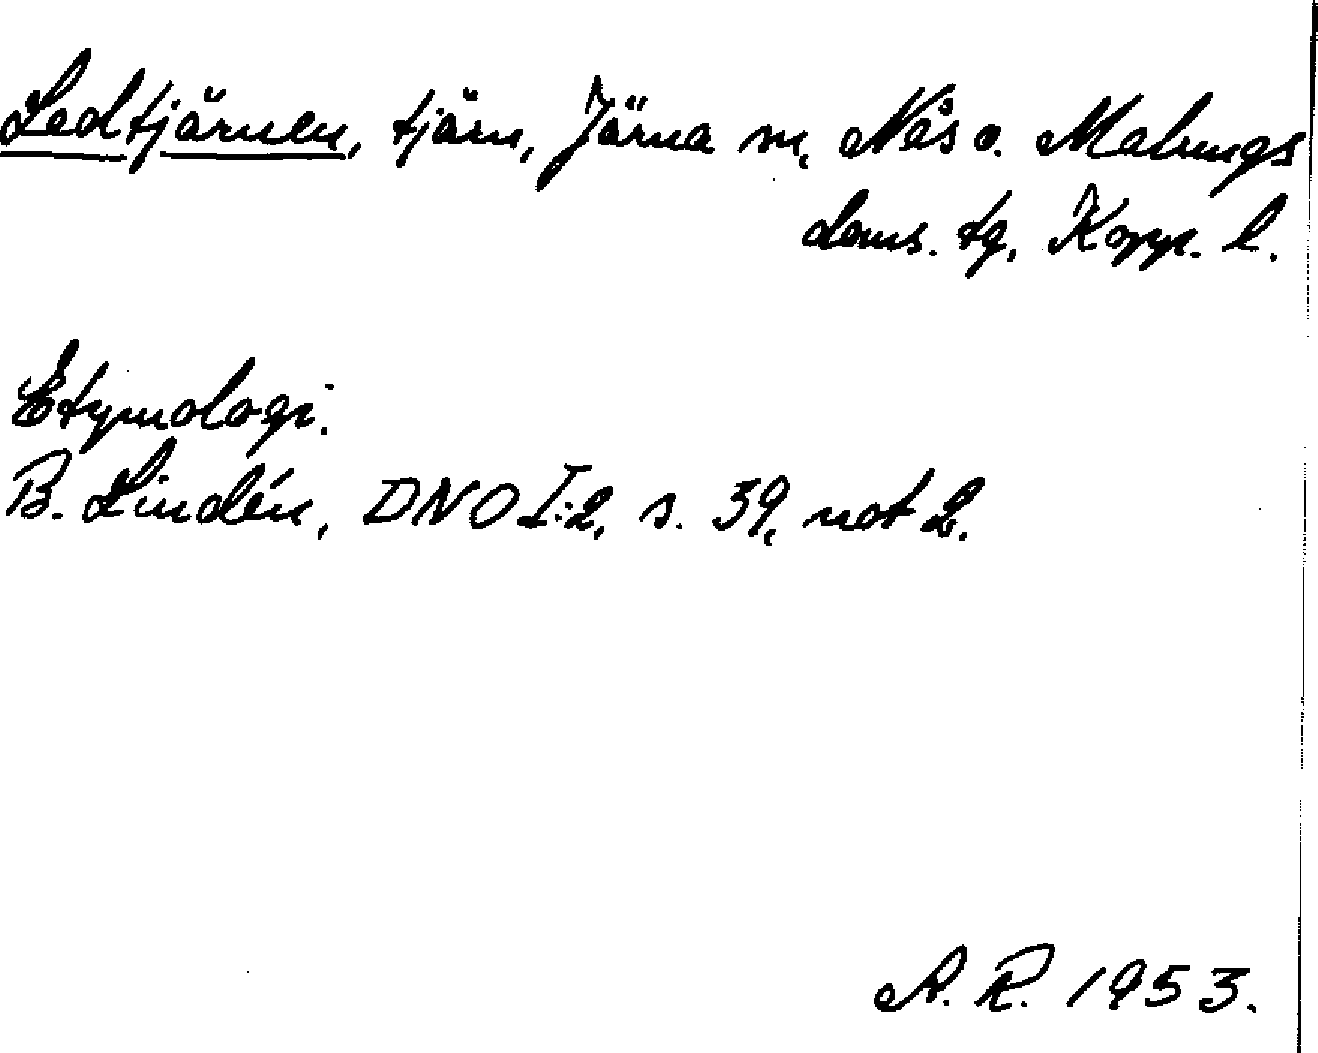 Ledtjärnen, tjärn, Järna sn, Nås o. Malungs
doms. tg, Kopp. l.
Etymologi.
B. Lindén, DNO I:2, s. 39, not 2.
A. R. 1953.